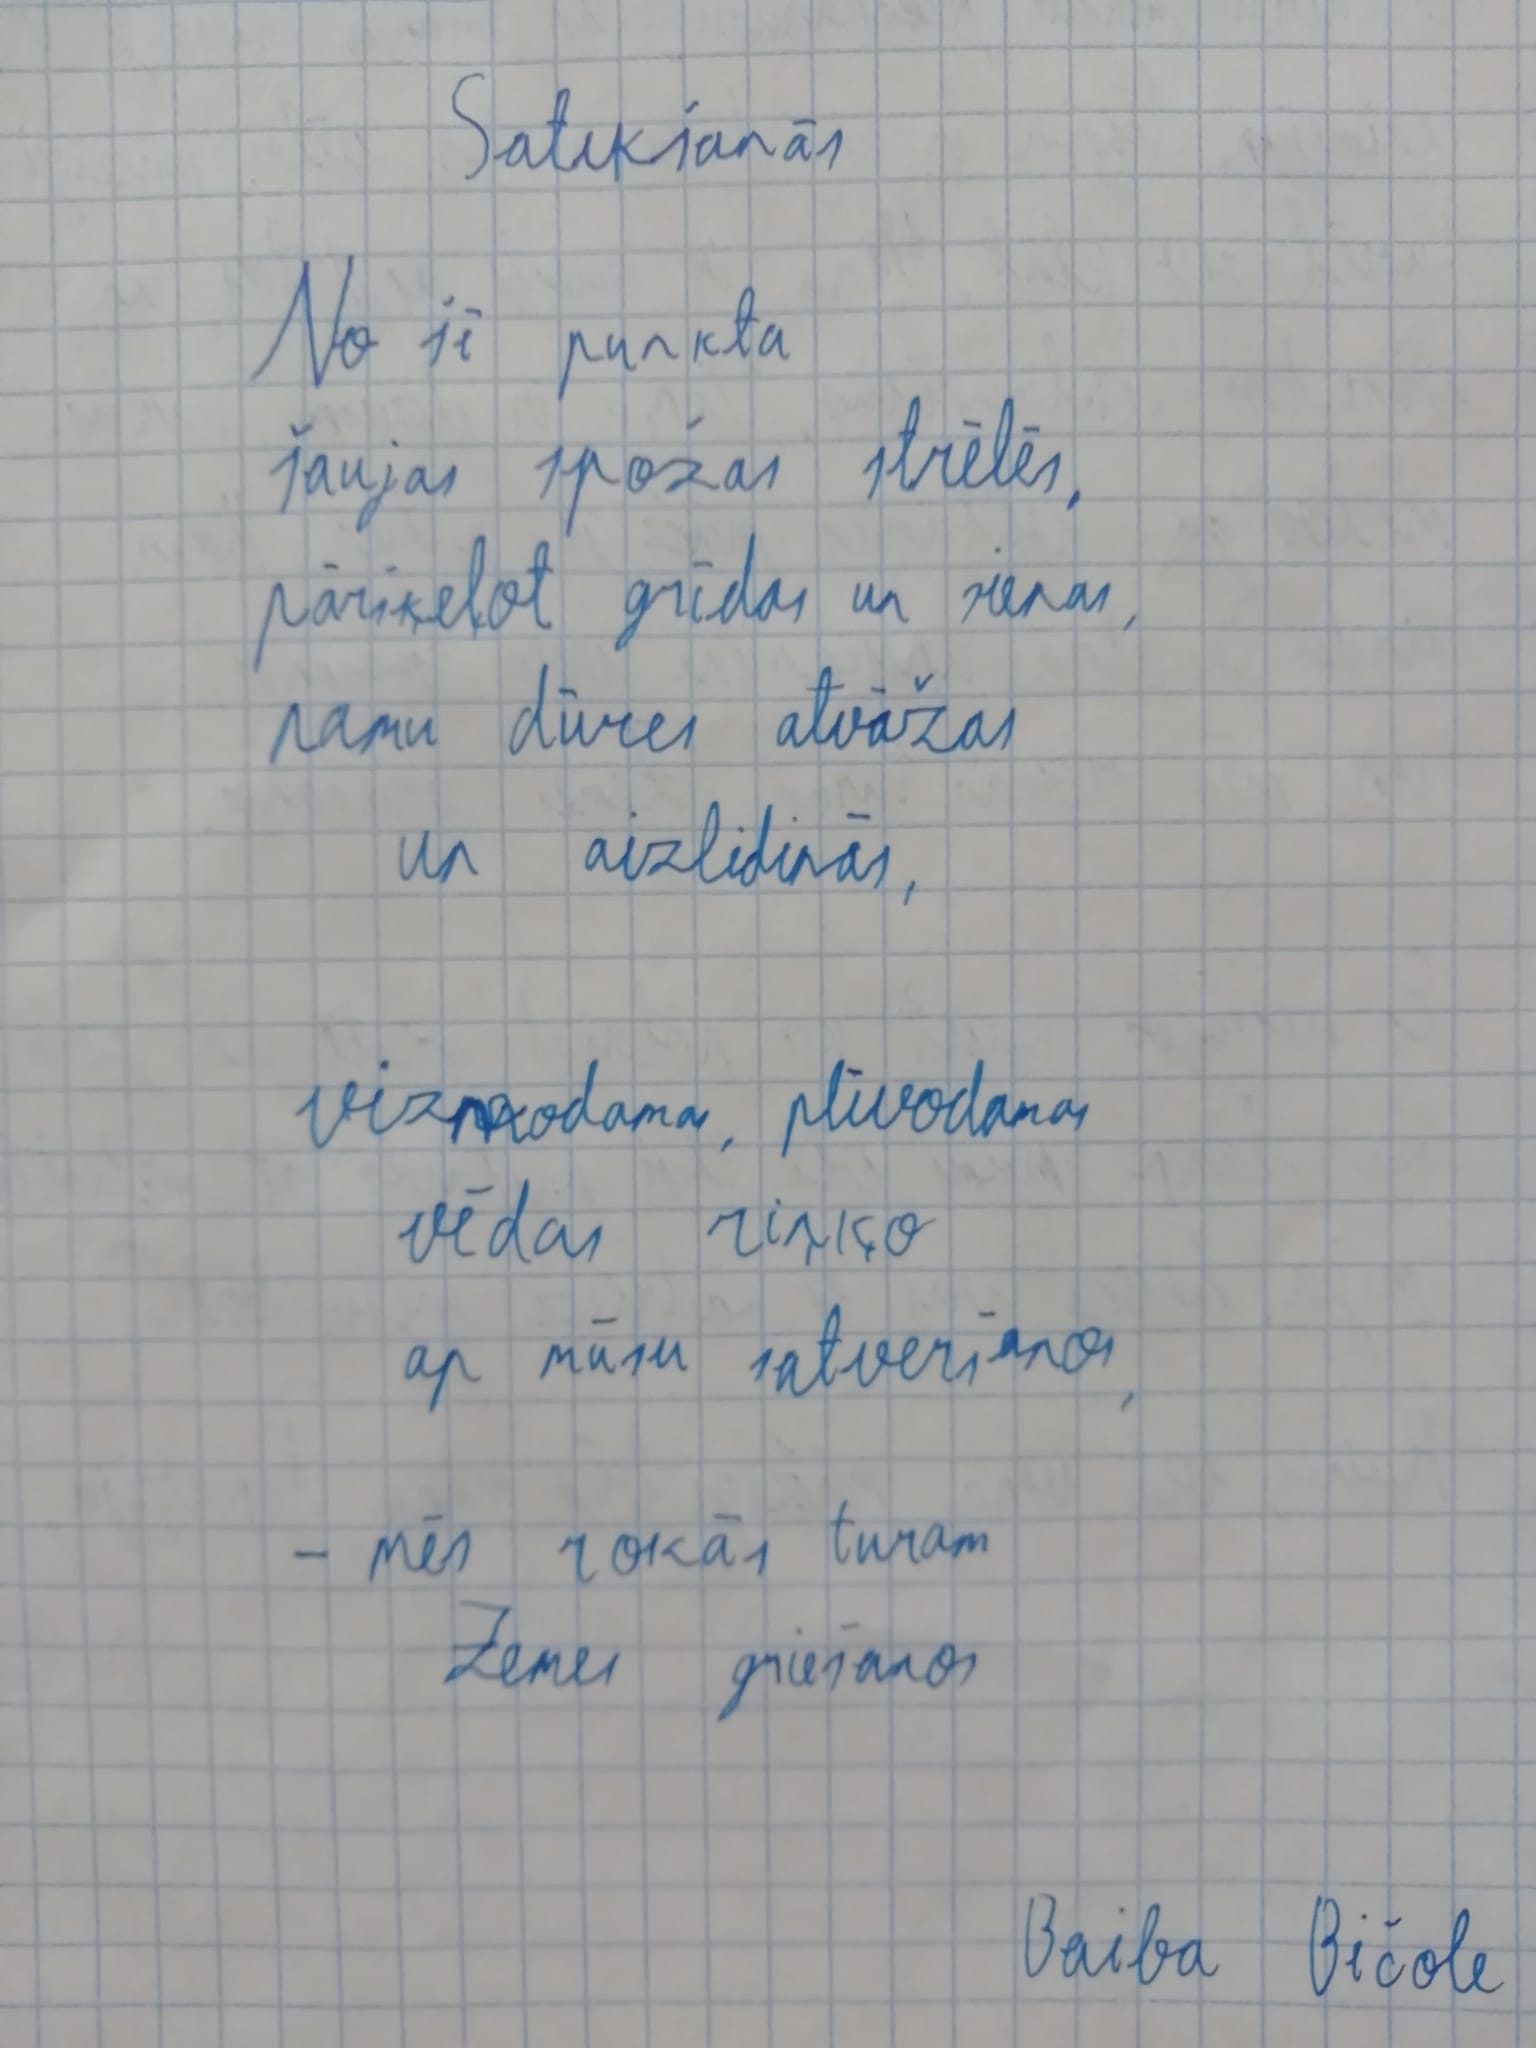 Satikšanās
No šī punkta
šaujas spožas strēles,
pāršķeļot grīdas un sienas,
namu dūres atvāžas
un aizlidinās,
vizuļodamas, plīvodamas
vēdas riņķo
ap mūsu satveršanos,
– mēs rokās turam
Zemes griešanos
Baiba Bičole